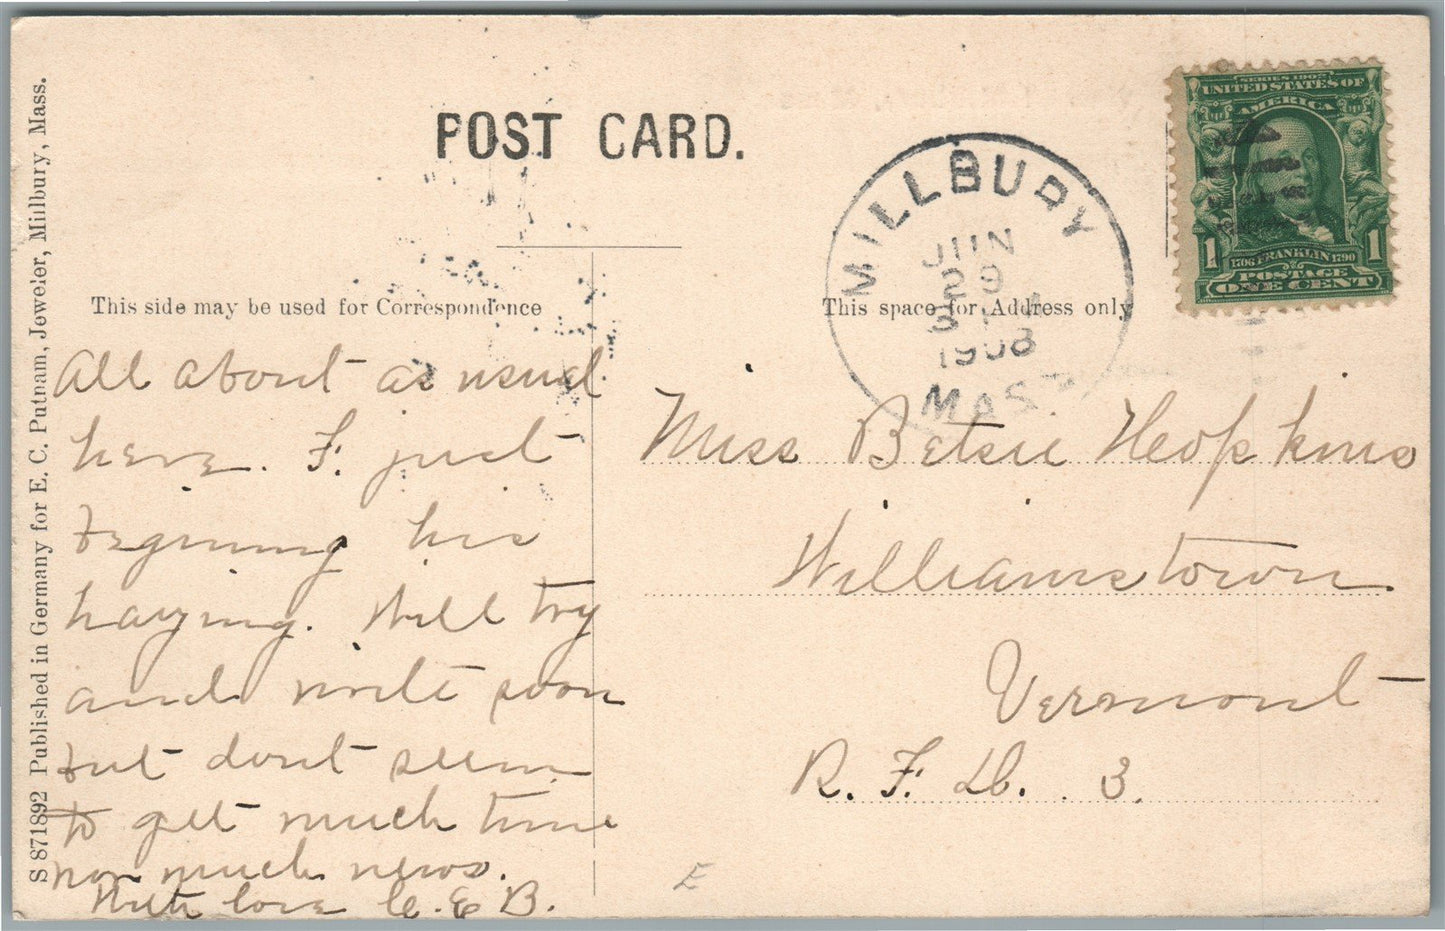 POST CARD.
This side may be used for Correspondence
This space for Address only
S 871892 Published in Germany for E. C. Putnam, Jeweler, Millbury, Mass.
MILLBURY
JUN
29
1908
MASS
SERIES 1902
UNITED STATES OF
AMERICA
1 1706 FRANKLIN 1790 1
POSTAGE
ONE CENT
All about as usual
here. F. just
begining his
haying. Will try
and write soon
but dont seem
to get much time
nor much news.
With love C. E B.
Miss Betsie Hopkins
Williamstown
Vermont
R. F. D. 3.
E